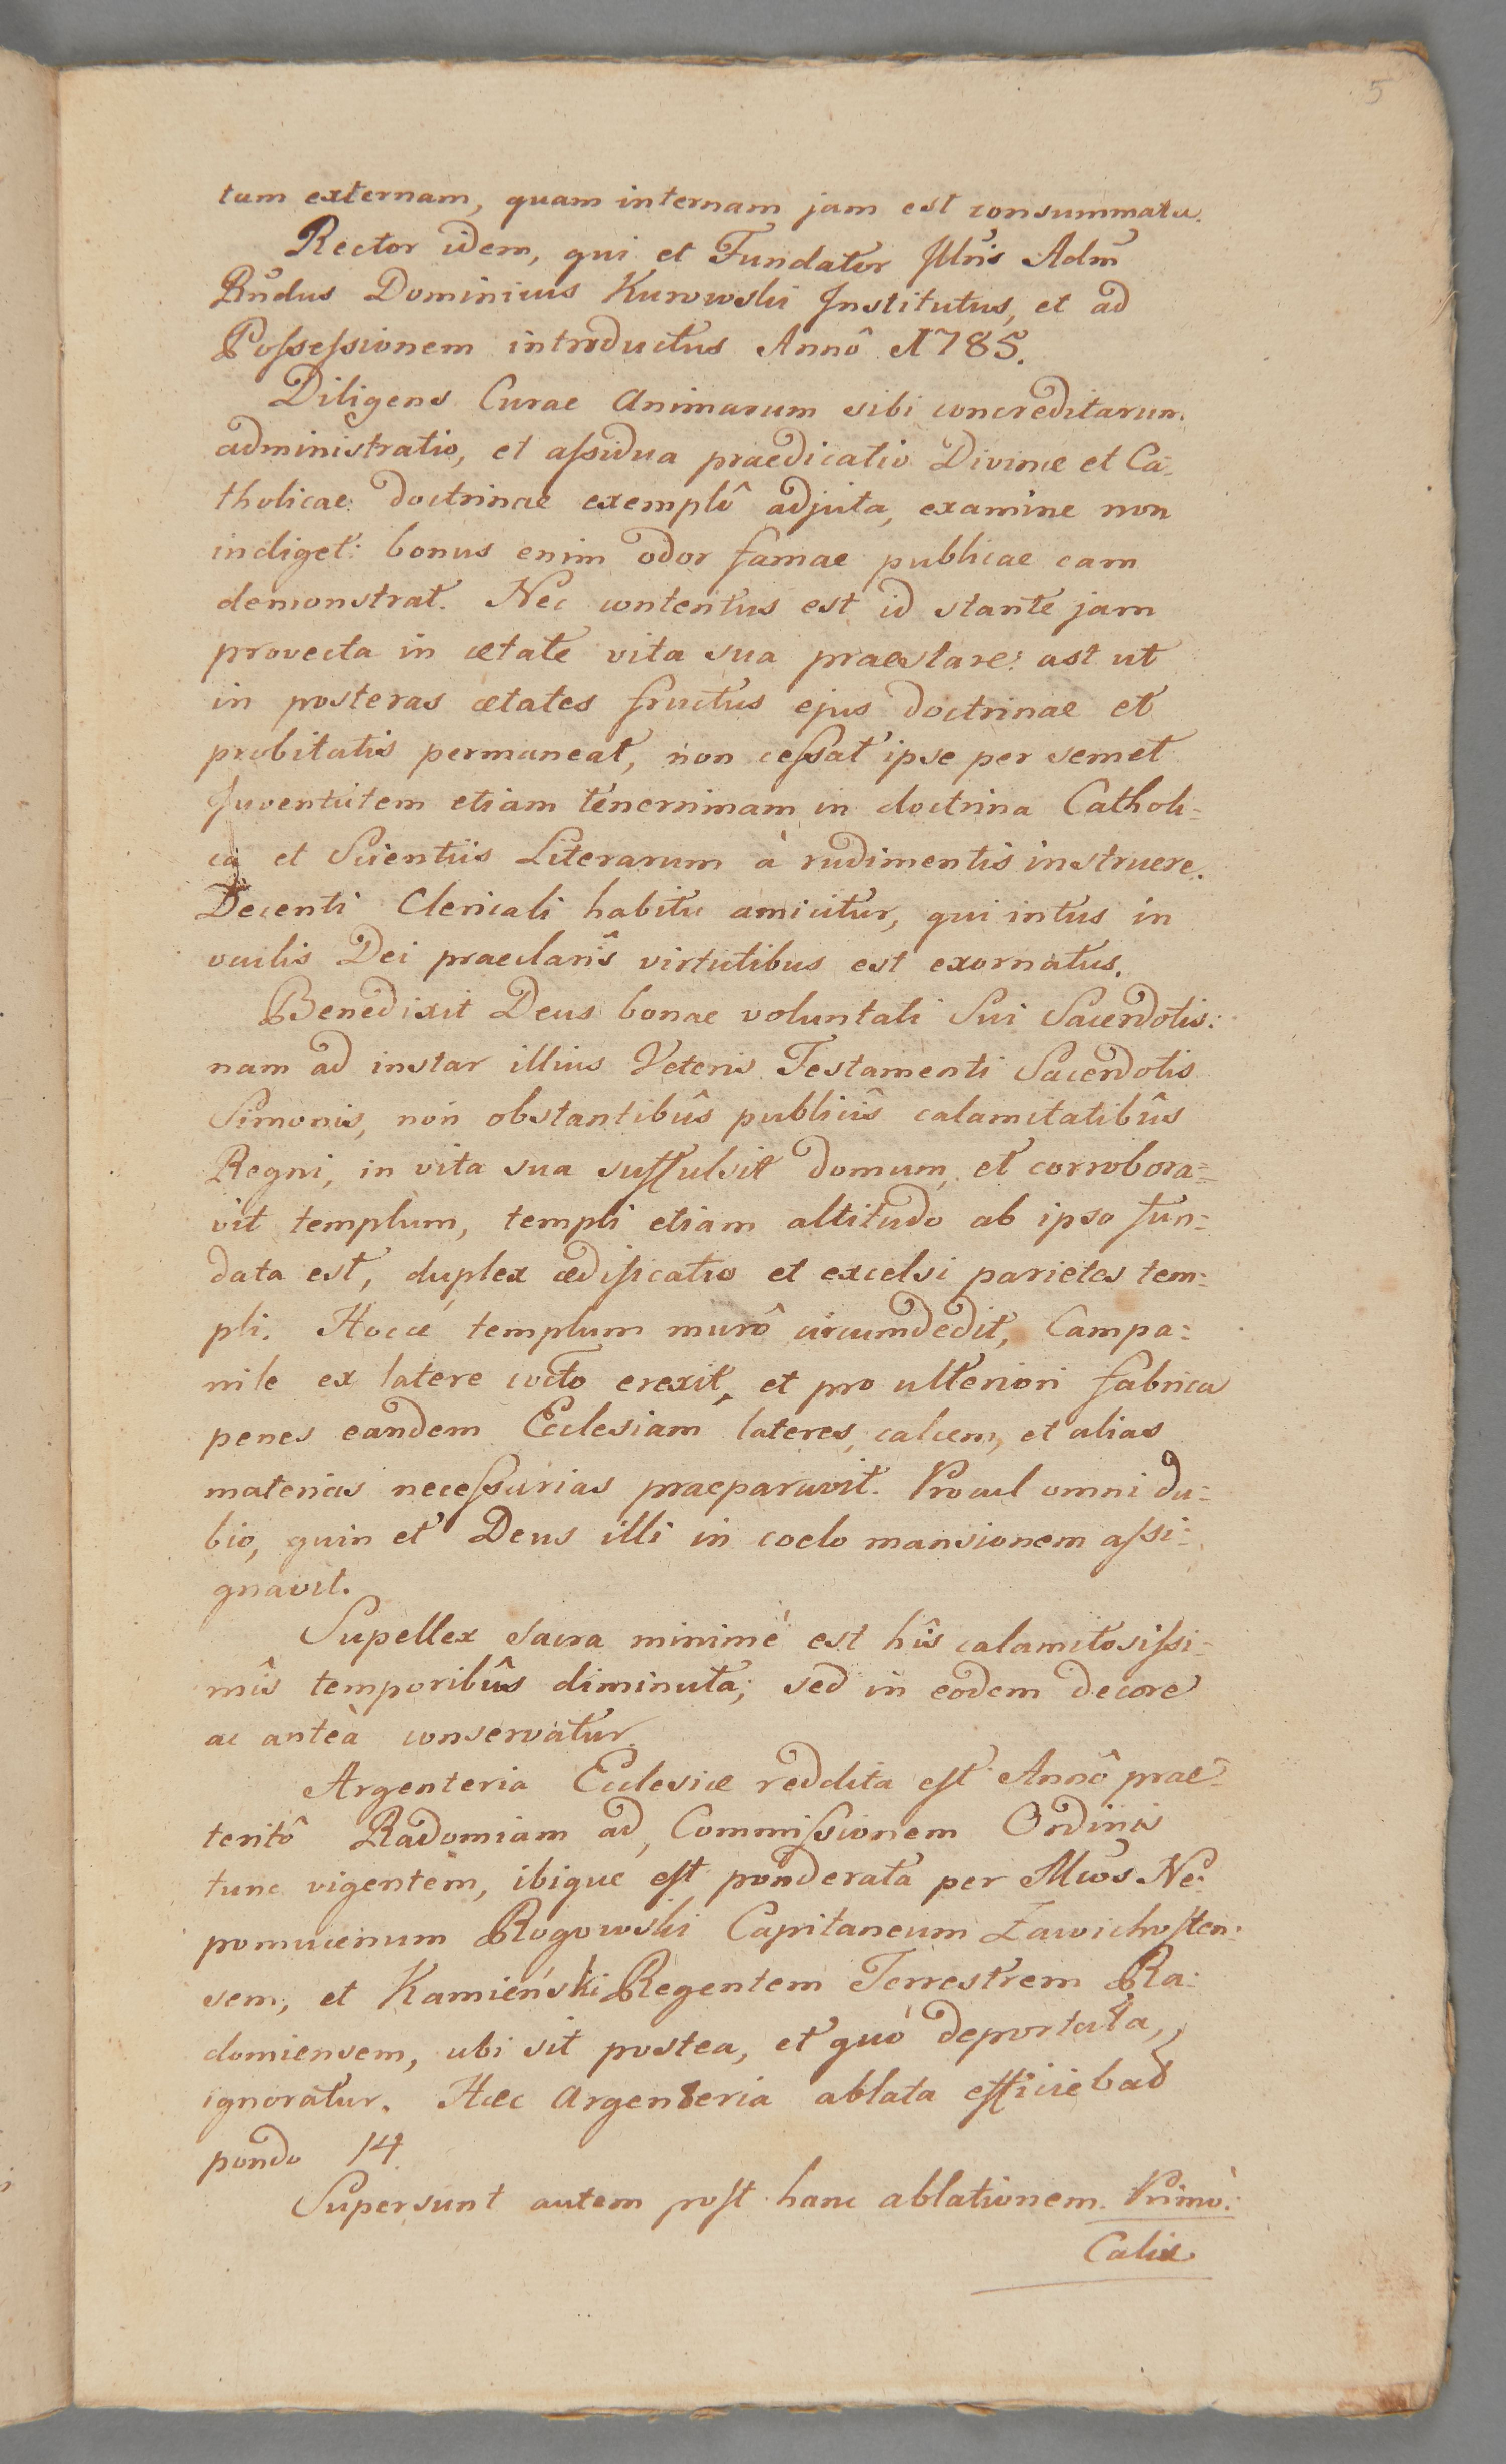 5
tum externam, quam internam jam est consummata.
Rector idem, qui et Fundator Jllris Adm̃
Rñdus Dominicus Kurowski Jnstitutus, et ad
Poſseſsionem introductus Annô 1785.
Diligens Curae Animarum sibi concreditarum
administratio, et aſsidua praedicatio Divinæ et Ca-
tholicae doctrinae exemplô adjuta, examine non
indiget: bonus enim odor famae publicae eam
demonstrat. Nec contentus est id stante jam
provecta in ætate vita sua praestare: ast ut
in posteras ætates fructus ejus doctrinae et
probitatis permaneat, non ceſsat ipse per semet
Juventutem etiam tenerrimam in doctrina Catholi-
ca et Scientiis Literarum à rudimentis instruere.
Decenti Clericali habitu amicitur, qui intus in
oculis Dei praeclarîs virtutibus est exornatus.
Benedixit Deus bonae voluntati Sui Sacerdotis:
nam ad instar illius Veteris Testamenti Sacerdotis
Simonis, non obstantibûs publicîs calamitatibûs
Regni, in vita sua suffulsit domum, et corrobora-
vit templum, templi etiam altitudo ab ipso fun-
data est, duplex ædificatio et excelsi parietes tem-
pli. Hocce templum murô circumdedit, Campa-
nile ex latere cocto erexit, et pro ulteriori fabrica
penes eandem Ecclesiam lateres, calcem, et alias
materias neceſsarias praeparavit. Procul omni du-
bio, quin et Deus illi in coelo mansionem aſsi-
gnavit.
Supellex Sacra minimè est hîs calamitosiſsi-
mîs temporibûs diminuta; sed in eodem decore
ac anteà conservatur.
Argenteria Ecclesiæ reddita eſt Annô prae-
teritô Radomiam ad Commiſsionem Ordinis
tunc vigentem, ibique eſt ponderata per Mcos Ne-
pomucenum Rogowski Capitaneum Zawichoſten-
sem, et Kamieński Regentem Terrestrem Ra-
domiensem, ubi sit postea, et quò deportata,
ignoratur. Hæc Argenteria ablata efficiebad
pondo 14.
Supersunt autem poſt hanc ablationem. Primò:
Calix